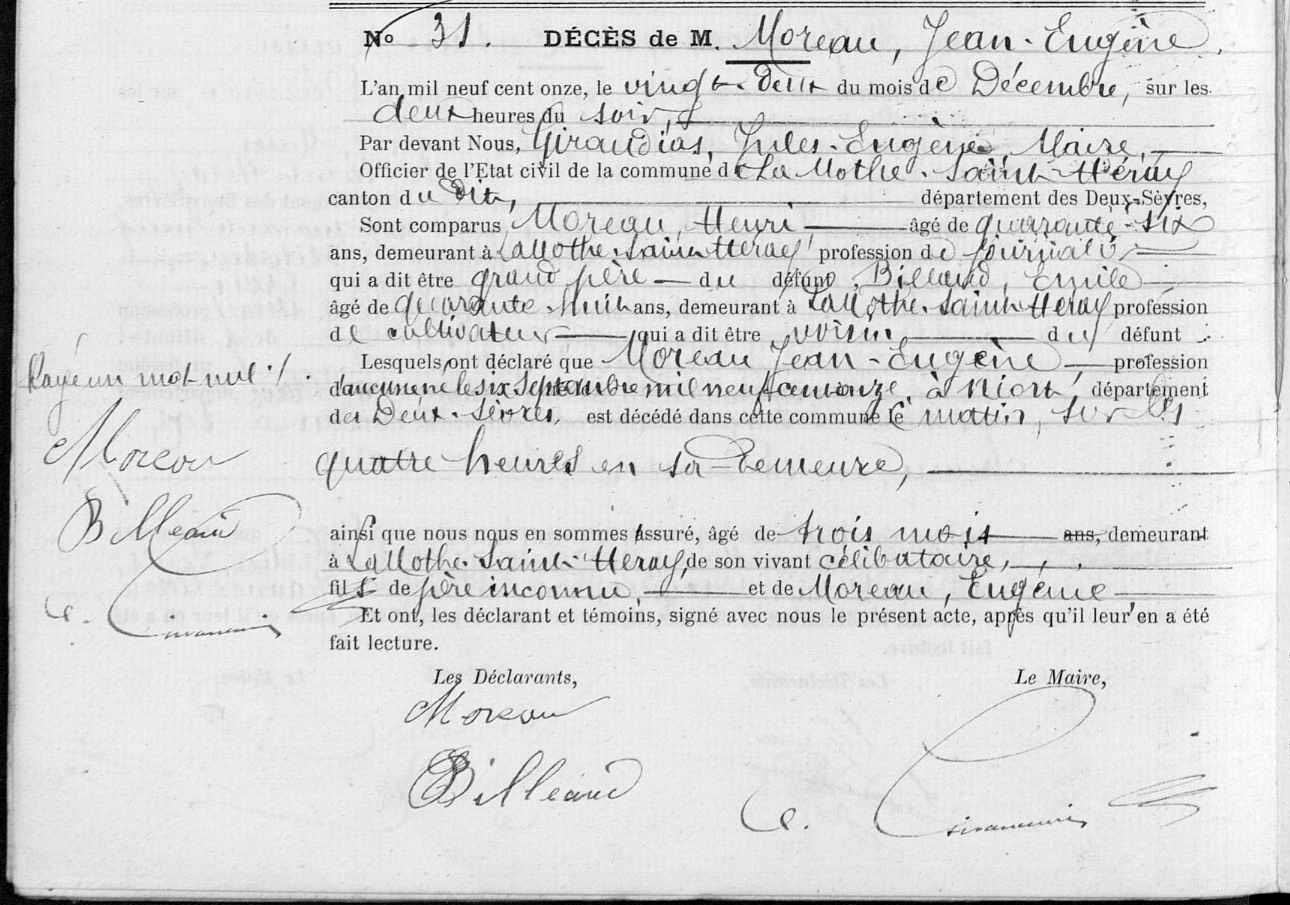 No 31. DÉCÈS de M. Moreau, Jean-Eugène.
L'an mil neuf cent onze, le vingt-deux du mois de Décembre, sur les
deux heures du soir,
Par devant Nous, Giraudias, Jules-Eugène Maire,
Officier de l'Etat civil de la commune de La Mothe-Saint-Héray
canton du dit, département des Deux-Sèvres,
Sont comparus Moreau, Henri âgé de quarante-six
ans, demeurant à La Mothe-Saint-Heray profession de journalier
qui a dit être grand père du défunt, Billeaud, Emile
âgé de quarante-huit ans, demeurant à La Mothe-Saint-Heray profession
de cultivateur qui a dit être voisin du défunt
Lesquels ont déclaré que Moreau Jean-Eugène profession
d'aucune né le six Septembre mil neuf cent onze à Niort, département
des Deux-Sèvres, est décédé dans cette commune le matin, sur les
quatre heures en sa demeure,
Rayé un mot nul ./.
Moreau
Billeaud
ainsi que nous nous en sommes assuré, âgé de trois mois ans, demeurant
à La Mothe-Saint-Heray, de son vivant célibataire,
fils de père inconnu, et de Moreau, Eugénie
Et ont, les déclarant et témoins, signé avec nous le présent acte, après qu'il leur en a été
fait lecture.
Les Déclarants, Le Maire,
Moreau
Billeaud